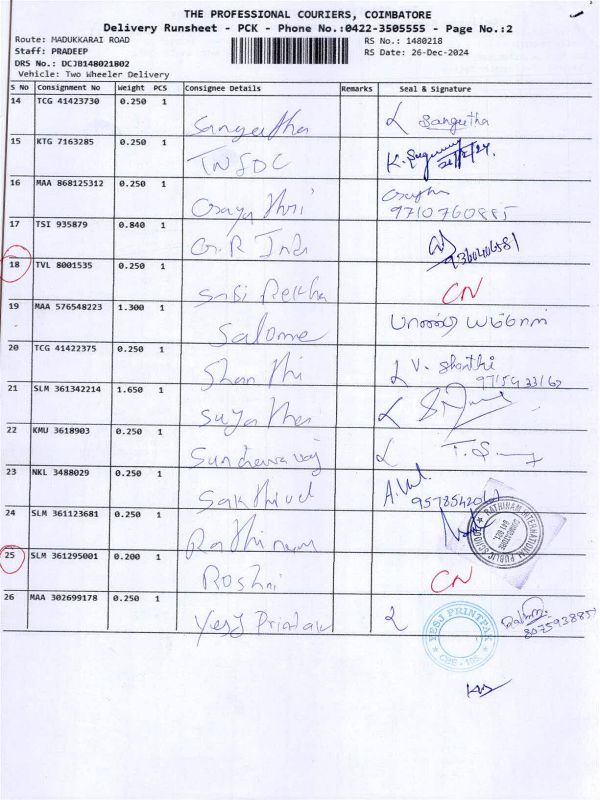 THE PROFESSIONAL COURIERS, COIMBATORE
Delivery Runsheet - PCK - Phone No.:0422-3505555 - Page No.:2
Route: MADUKKARAI ROAD
RS No.: 1480218
Staff: PRADEEP
RS Date: 26-Dec-2024
DRS No.: DCJB148021802
Vehicle: Two Wheeler Delivery
S No Consignment No Weight PCS Consignee Details Remarks Seal & Signature
14 TCG 41423730 0.250 1
Sangeetha Sangeetha
15 KTG 7163285 0.250 1
TNSDC
16 MAA 868125312 0.250 1
9710760885
17 TSI 935879 0.840 1
G.R
18 TVL 8001535 0.250 1
Rekha CN
19 MAA 576548223 1.300 1
Salome
20 TCG 41422375 0.250 1
Shanthi V. Shanthi
21 SLM 361342214 1.650 1
Sujatha
22 KMU 3618903 0.250 1
23 NKL 3488029 0.250 1
Sakthivel
24 SLM 361123681 0.250 1
Rathinam RATHINAM INTERNATIONAL PUBLIC SCHOOL
25 SLM 361295001 0.200 1
Roshni CN
26 MAA 302699178 0.250 1
Yesj Printpak YESJ PRINTPAK